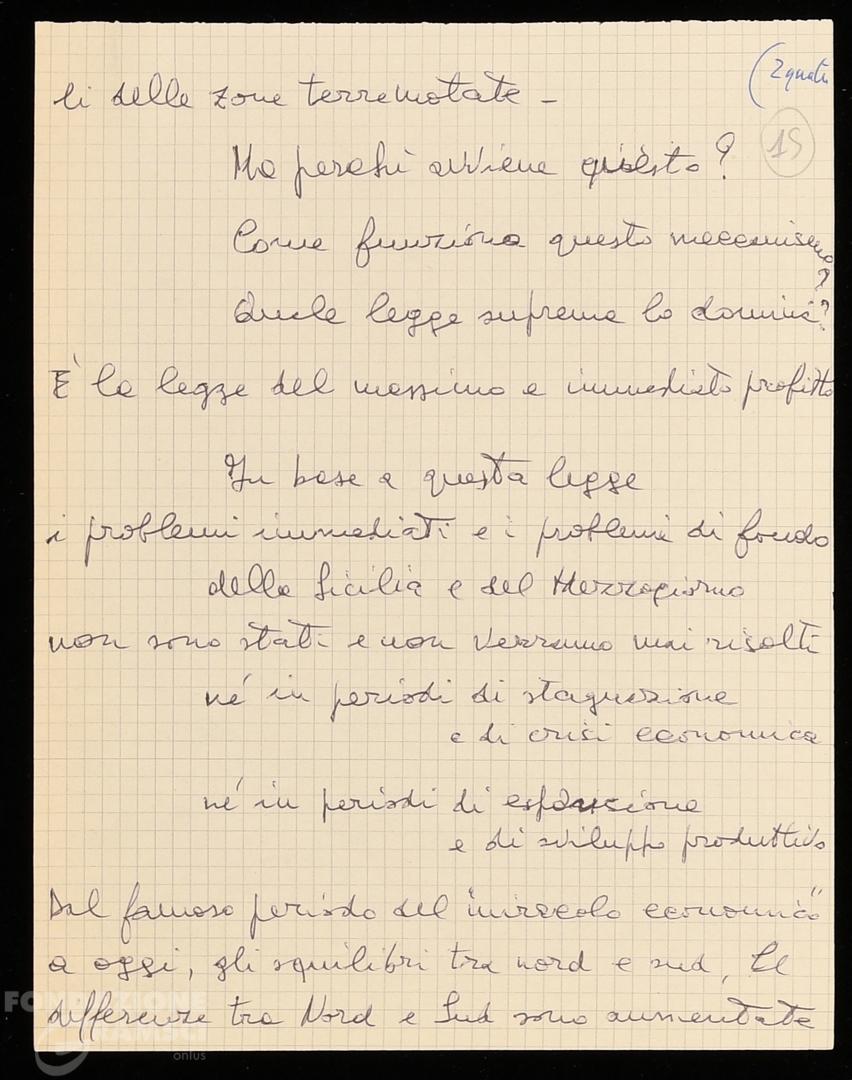 li delle zone terremotate -
15
Ma perché avviene questo?
Come funziona questo meccanismo?
Quale legge suprema lo domina?
È la legge del massimo e immediato profitto
In base a questa legge
i problemi immediati e i problemi di fondo
della Sicilia e del Mezzogiorno
non sono stati e non verranno mai risolti
né in periodi di stagnazione
e di crisi economica
né in periodi di espansione
e di sviluppo produttivo
Dal famoso periodo del "miracolo economico"
a oggi, gli squilibri tra nord e sud, le
differenze tra Nord e Sud sono aumentate
FONDAZIONE
GRAMSCI
onlus